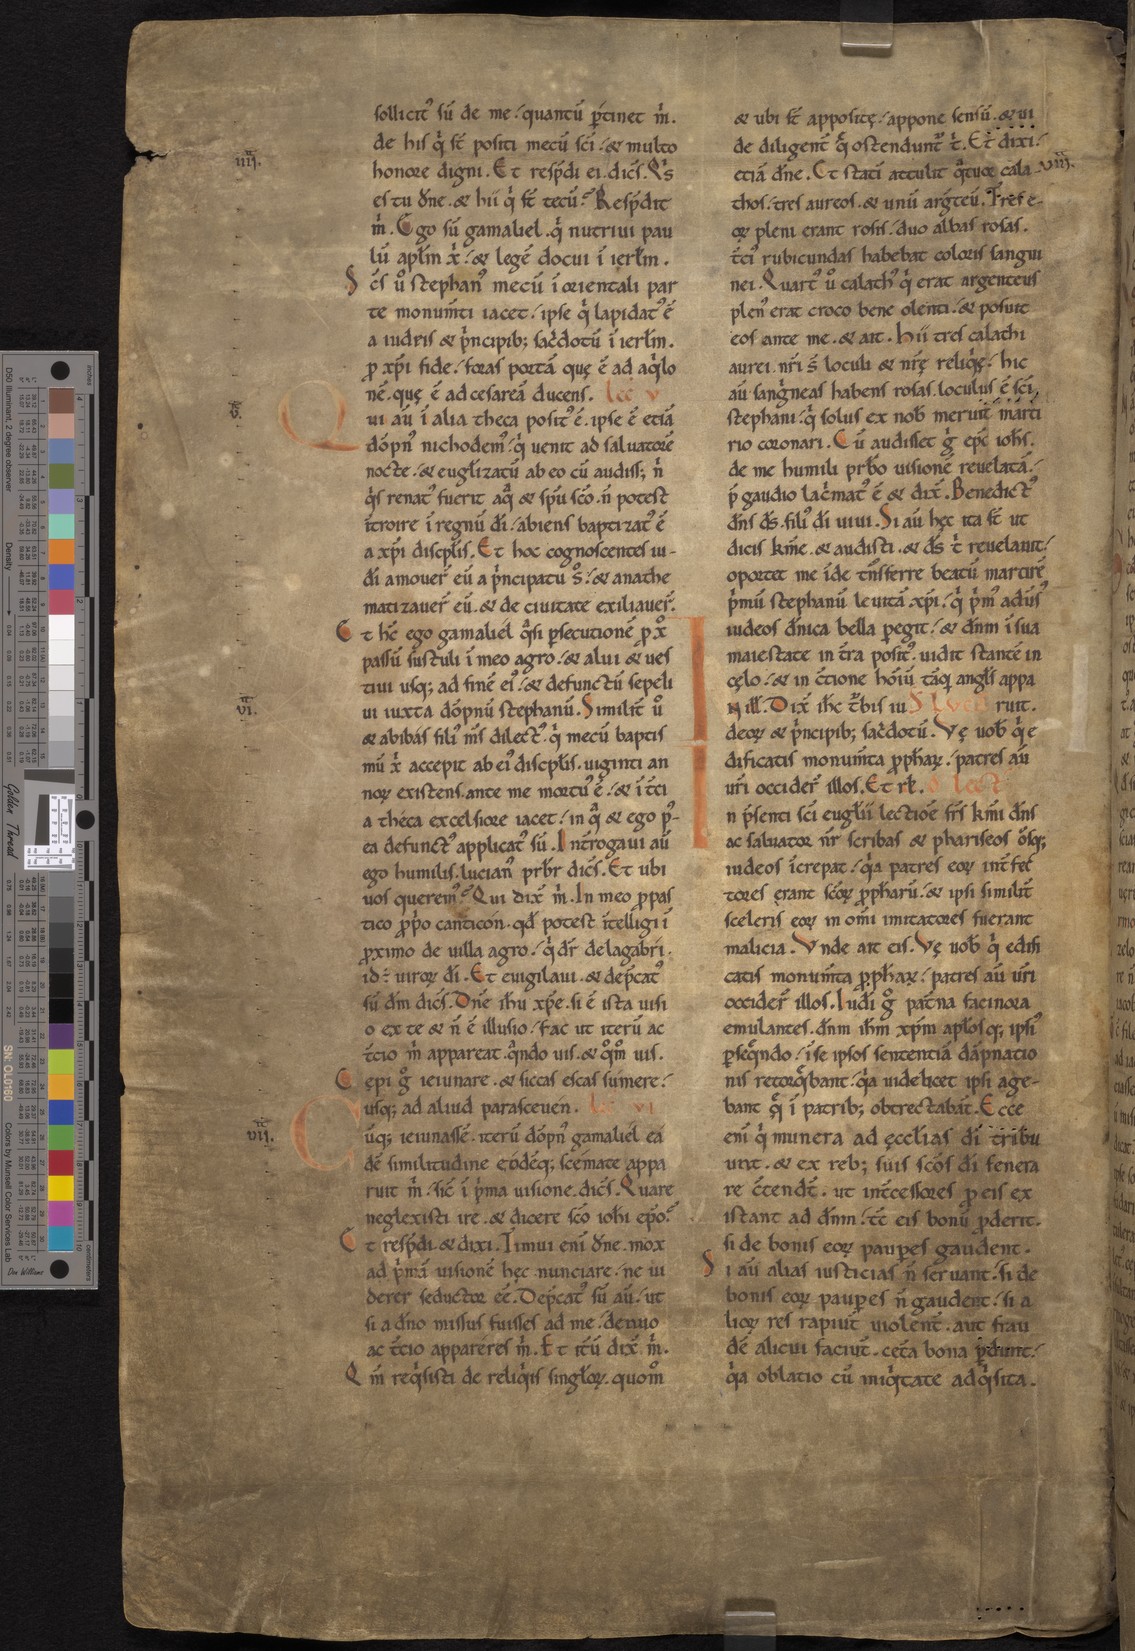 sollicit᾿ sū de me. quantū ꝑtinet m̄.
de his q̄ st̄ positi mecū sc̄i. & multo
honore digni. Et respōdi ei. dicēs. Q̄s
es tu dn̄e. & hii q̄ st̄ tecū. Respōdit
m̄. Ego sū gamaliel. q̄ nutriui pau
lū apl̄m x̄. & legē docui ī ierl̄m.
Sc̄s ū stephan᾿ mecū ī orientali par
te monumt̄i iacet. ipse q̄ lapidat᾿ ē
a iudęis & p̄ncipib; sac̄dotū ī ierl̄m.
ꝓ xp̄i fide. foras portā quę ē ad aq̄lo
nē. quę ē ad cesareā ducens. Lec v
Qui aū ī alia theca posit᾿ ē. ipse ē etiā
dōpn᾿ nichodem᾿. q̄ uenit ad saluatorē
nocte. & euglīzatū ab eo cū audiss; n̄
q̄s renat᾿ fuerit aq̄ & spū sc̄o. n̄ potest
ītroire ī regnū dī. abiens baptizat᾿ ē
a xp̄i discpl̄is. Et hoc cognoscentes iu-
dī amouer̄ eū a p̄ncipatu s̊. & anathe
matizauer̄ eū. & de ciuitate exiliauer̄.
Et hc̄ ego gamaliel q̄si ꝑsecutionē ꝓ x̄
passū sustuli ī meo agro. & alui & ues
tiui usq; ad finē ei᾿. & defunctū sepeli
ui iuxta dōpnū stephanū. Similit̄ ū
& abibas fili᾿ m̄s dilect᾿. q̄ mecū baptis
mū x̄ accepit ab ei᾿ discpl̄is. uiginti an
noꝝ existens. ante me mortu᾿ ē. & ī t̄ci
a theca excelsiore iacet. in q̄ & ego p᾿-
ea defunct᾿ applicat᾿ sū. Int̄rogaui aū
ego humilis. lucian᾿ prb̄r dicēs. Et ubi
uos querem᾿. Qui dix̄ m̄. In meo ꝓpas
tico ꝓp̄o canticon. qd̄ potest ītelligi ī
ꝓximo de uilla agro. q̄ dr̄ delagabri.
id ÷ uiroꝝ dī. Et euigilaui. & dep̄cat᾿
sū dm̄ dicēs. Dn̄e ih̄u xp̄e. si ē ista uisi
o ex te & n̄ ē illusio. fac ut iterū ac
t̄cio m̄ appareat. q̄ndo uis. & q̊m̊ uis.
Cepi g̊ ieiunare. & siccas escas sumere.
usq; ad aliud parasceuen. Lec vi
Cūq; ieiunassē. iterū dōpn᾿ gamaliel eā
dē similitudine eōdēq; scēmate appa
ruit m̄. sic̄ ī p̄ma uisione. dicēs. Quare
neglexisti ire. & dicere sc̄o ioh̄i ep̄o.
Et respōdi & dixi. Timui eni dn̄e. mox
ad p̄mā uisionē hęc nunciare. ne ui
derer seductor ēē. Dep̄cat᾿ sū aū. ut
si a dn̄o missus fuisses ad me. denuo
ac t̄cio appareres m̄. Et it̄ū dix̄ m̄.
Qm̄ req̄sisti de reliq̄is singl̄oꝝ. quom̊
& ubi st̄ apposite. appone sensū. & ui
de diligent̄ q̄ ostendunt᾿ t̄. Et dixi.
etiā dn̄e. Et stati attulit q̄tuor cala
thos. tres aureos. & unū argteū. Tres e-
oꝝ pleni erant rosis. duo albas rosas.
t̄ci᾿ rubicundas habebat coloris sangui
nei. Quart᾿ ū calath᾿ q̄ erat argenteus
plen᾿ erat croco bene olenti. & posuit
eos ante me. & ait. Hii tres calathi
aurei. nr̄i s̄ loculi & nr̄ę reliq̄ę. hic
aū sangneas habens rosas. loculus ē sc̄i
stephani. q̄ solus ex nob̄ meruit marti
rio coronari. Cū audisset g̊ ep̄c ioh̄s.
de me humili prb̄o uisionē reuelatā.
p̄ gaudio lac̄mat᾿ ē & dix̄. Benedict᾿
dn̄s ds̄. fili᾿ dī uiui. Si aū hęc ita st̄ ut
dicis km̄e. & audisti. & ds̄ t̄ reuelauit.
oportet me īde tn̄sferre beatū martirē
p̄mū stephanū leuitā xp̄i. q̄ p̄m᾿ adūs᾿
iudeos dn̄ica bella ꝑegit. & dn̄m ī sua
maiestate in t̄ra posit᾿. uidit stantē in
cęlo. & in c̄tione hoīū tāq̄ angl̄s appa
In ill̄. Dix̄ ih̄c t̄bis iu S Lucā ruit.
deoꝝ & p̄ncipib; sac̄dotū. Vę uob̄ q̄ e
dificatis monum̄ta ꝓphaꝝ. patres aū
ur̄i occider̄ illos. Et rł. Lect
In p̄senti sc̄i euglīi lectiōe fr̄s km̄i dn̄s
ac saluator nr̄ scribas & phariseos ōsq;
iudeos īcrepat. q̄a patres eoꝝ int̄fec
tores erant sc̄oꝝ ꝓpharū. & ipsi similit̄
sceleris eoꝝ in om̄i imitatores fuerant
malicia. Vnde ait eis. Vę uob̄ q̄ edifi
catis monum̄ta ꝓphaꝝ. patres aū ur̄i
occider̄ illos. Iudī g̊ pat̄na facinora
emulantes. dn̄m ih̄m xp̄m apl̄osq; ipsi᾿
ꝑseq̄ndo. ī se ipsos sententiā dāpnatio
nis retorq̄bant. q̄a uidelicet ipsi age-
bant q̄ ī patrib; obtrectabāt. Ecce
eni q̄ munera ad ęccl̄ias dī tribu
unt. & ex reb; suis sc̄os dī fenera
re c̄tendt̄. ut int̄cessores ꝓ eis ex
istant ad dn̄m. tc̄ eis bonū ꝓderit.
si de bonis eoꝝ pauꝑes gaudent.
Si aū alias iusticias n̄ seruant. si de
bonis eoꝝ pauꝑes n̄ gaudent. si a
lioꝝ res rapiūt uiolent̄. aut frau
dē alicui faciūt. cet̄a bona ꝑdunt.
q̄a oblatio cū iniq̄tate adq̄sita.
iiii.
v.
vi.
vii.
viii.